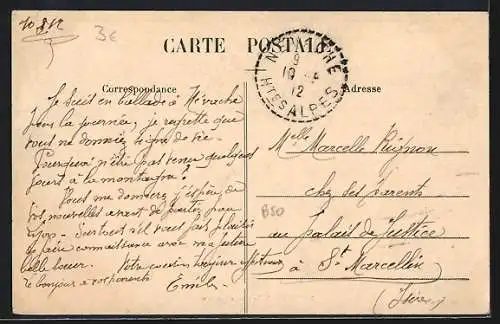 10-8-12
3€
CARTE POSTALE
NÉVACHE
10
12
HTES ALPES
Correspondance
Adresse
Je suis en ballade à Névache
pour la journée, je regrette que
vous ne donniez signe de vie.
Pourquoi n'être pas venu quelques
jours à la montagne ?
Vous me donnerez j'espère, de
vos nouvelles avant de partir pour
Surtout s'il vous plait
de faire connaissance avec ma future
belle soeur. Votre cousin toujours affectueux
le bonjour à vos parents Emile
Melle Marcelle
chez ses parents
au Palais de Justice
à St Marcellin
(Isère)
B50